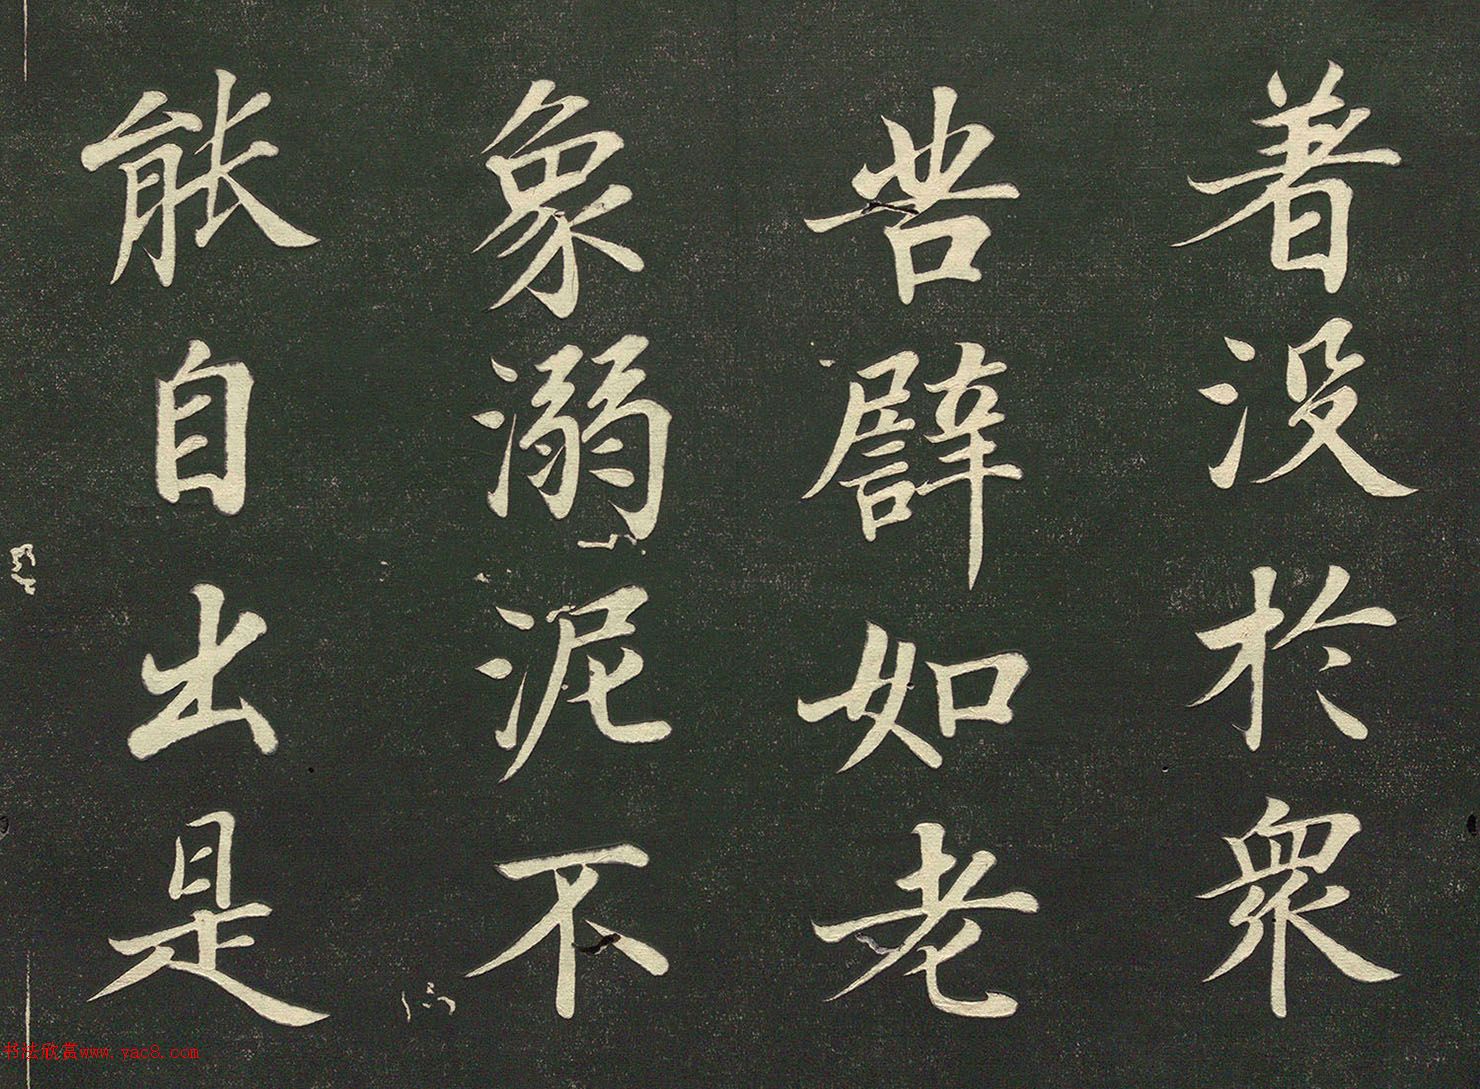 著没於衆
苦譬如老
象溺泥不
能自出是
书法欣赏www.yac8.com